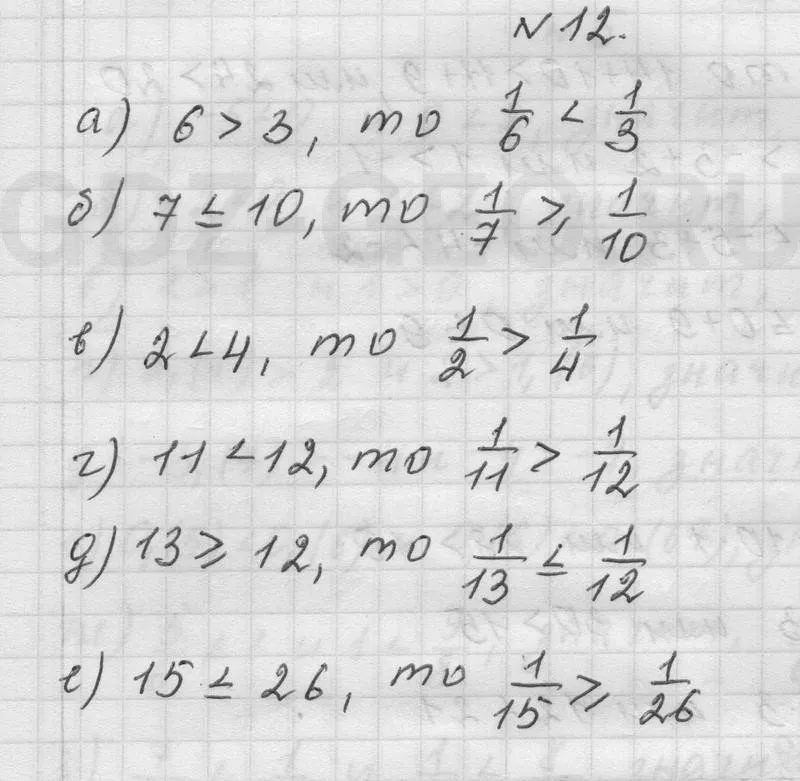 № 12.
а) 6 > 3, то 1/6 < 1/3
б) 7 ≤ 10, то 1/7 ≥ 1/10
в) 2 < 4, то 1/2 > 1/4
г) 11 < 12, то 1/11 > 1/12
д) 13 ≥ 12, то 1/13 ≤ 1/12
е) 15 ≤ 26, то 1/15 ≥ 1/26